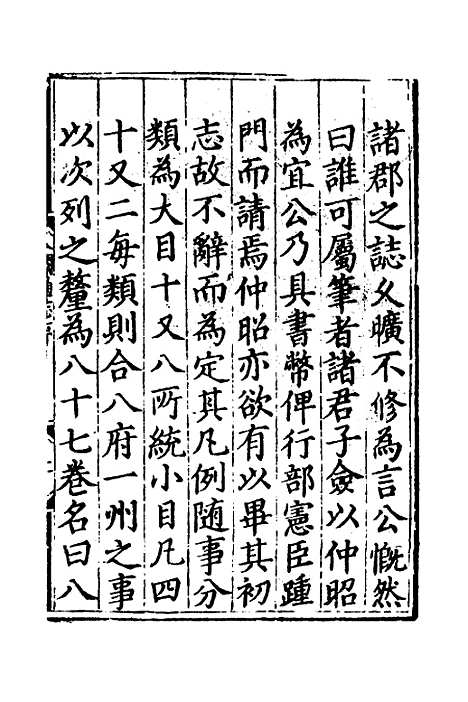 諸郡之誌久曠不修為言公慨然
曰誰可屬筆者諸君子僉以仲昭
為宜公乃具書幣俾行部憲臣踵
門而請焉仲昭亦欲有以畢其初
志故不辭而為定其凡例随事分
類為大目十又八所統小目凡四
十又二每類則合八府一州之事
以次列之釐為八十七卷名曰八